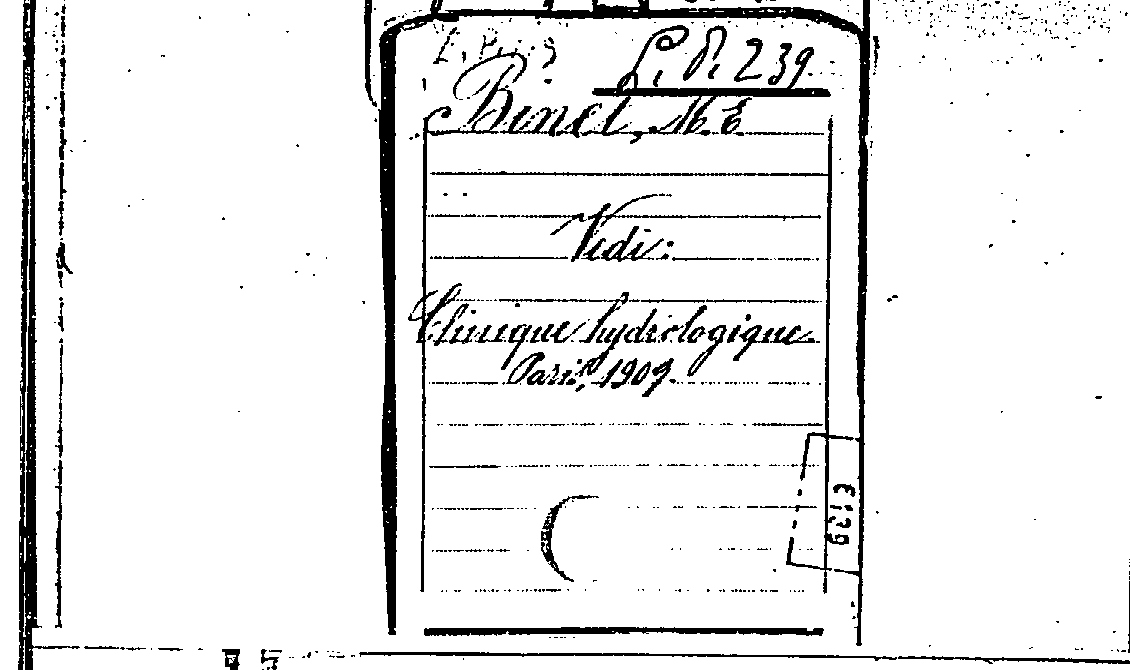 L. P. 239.
Binet, M. E.
Vidi:
Clinique hydrologique.
Paris, 1909.